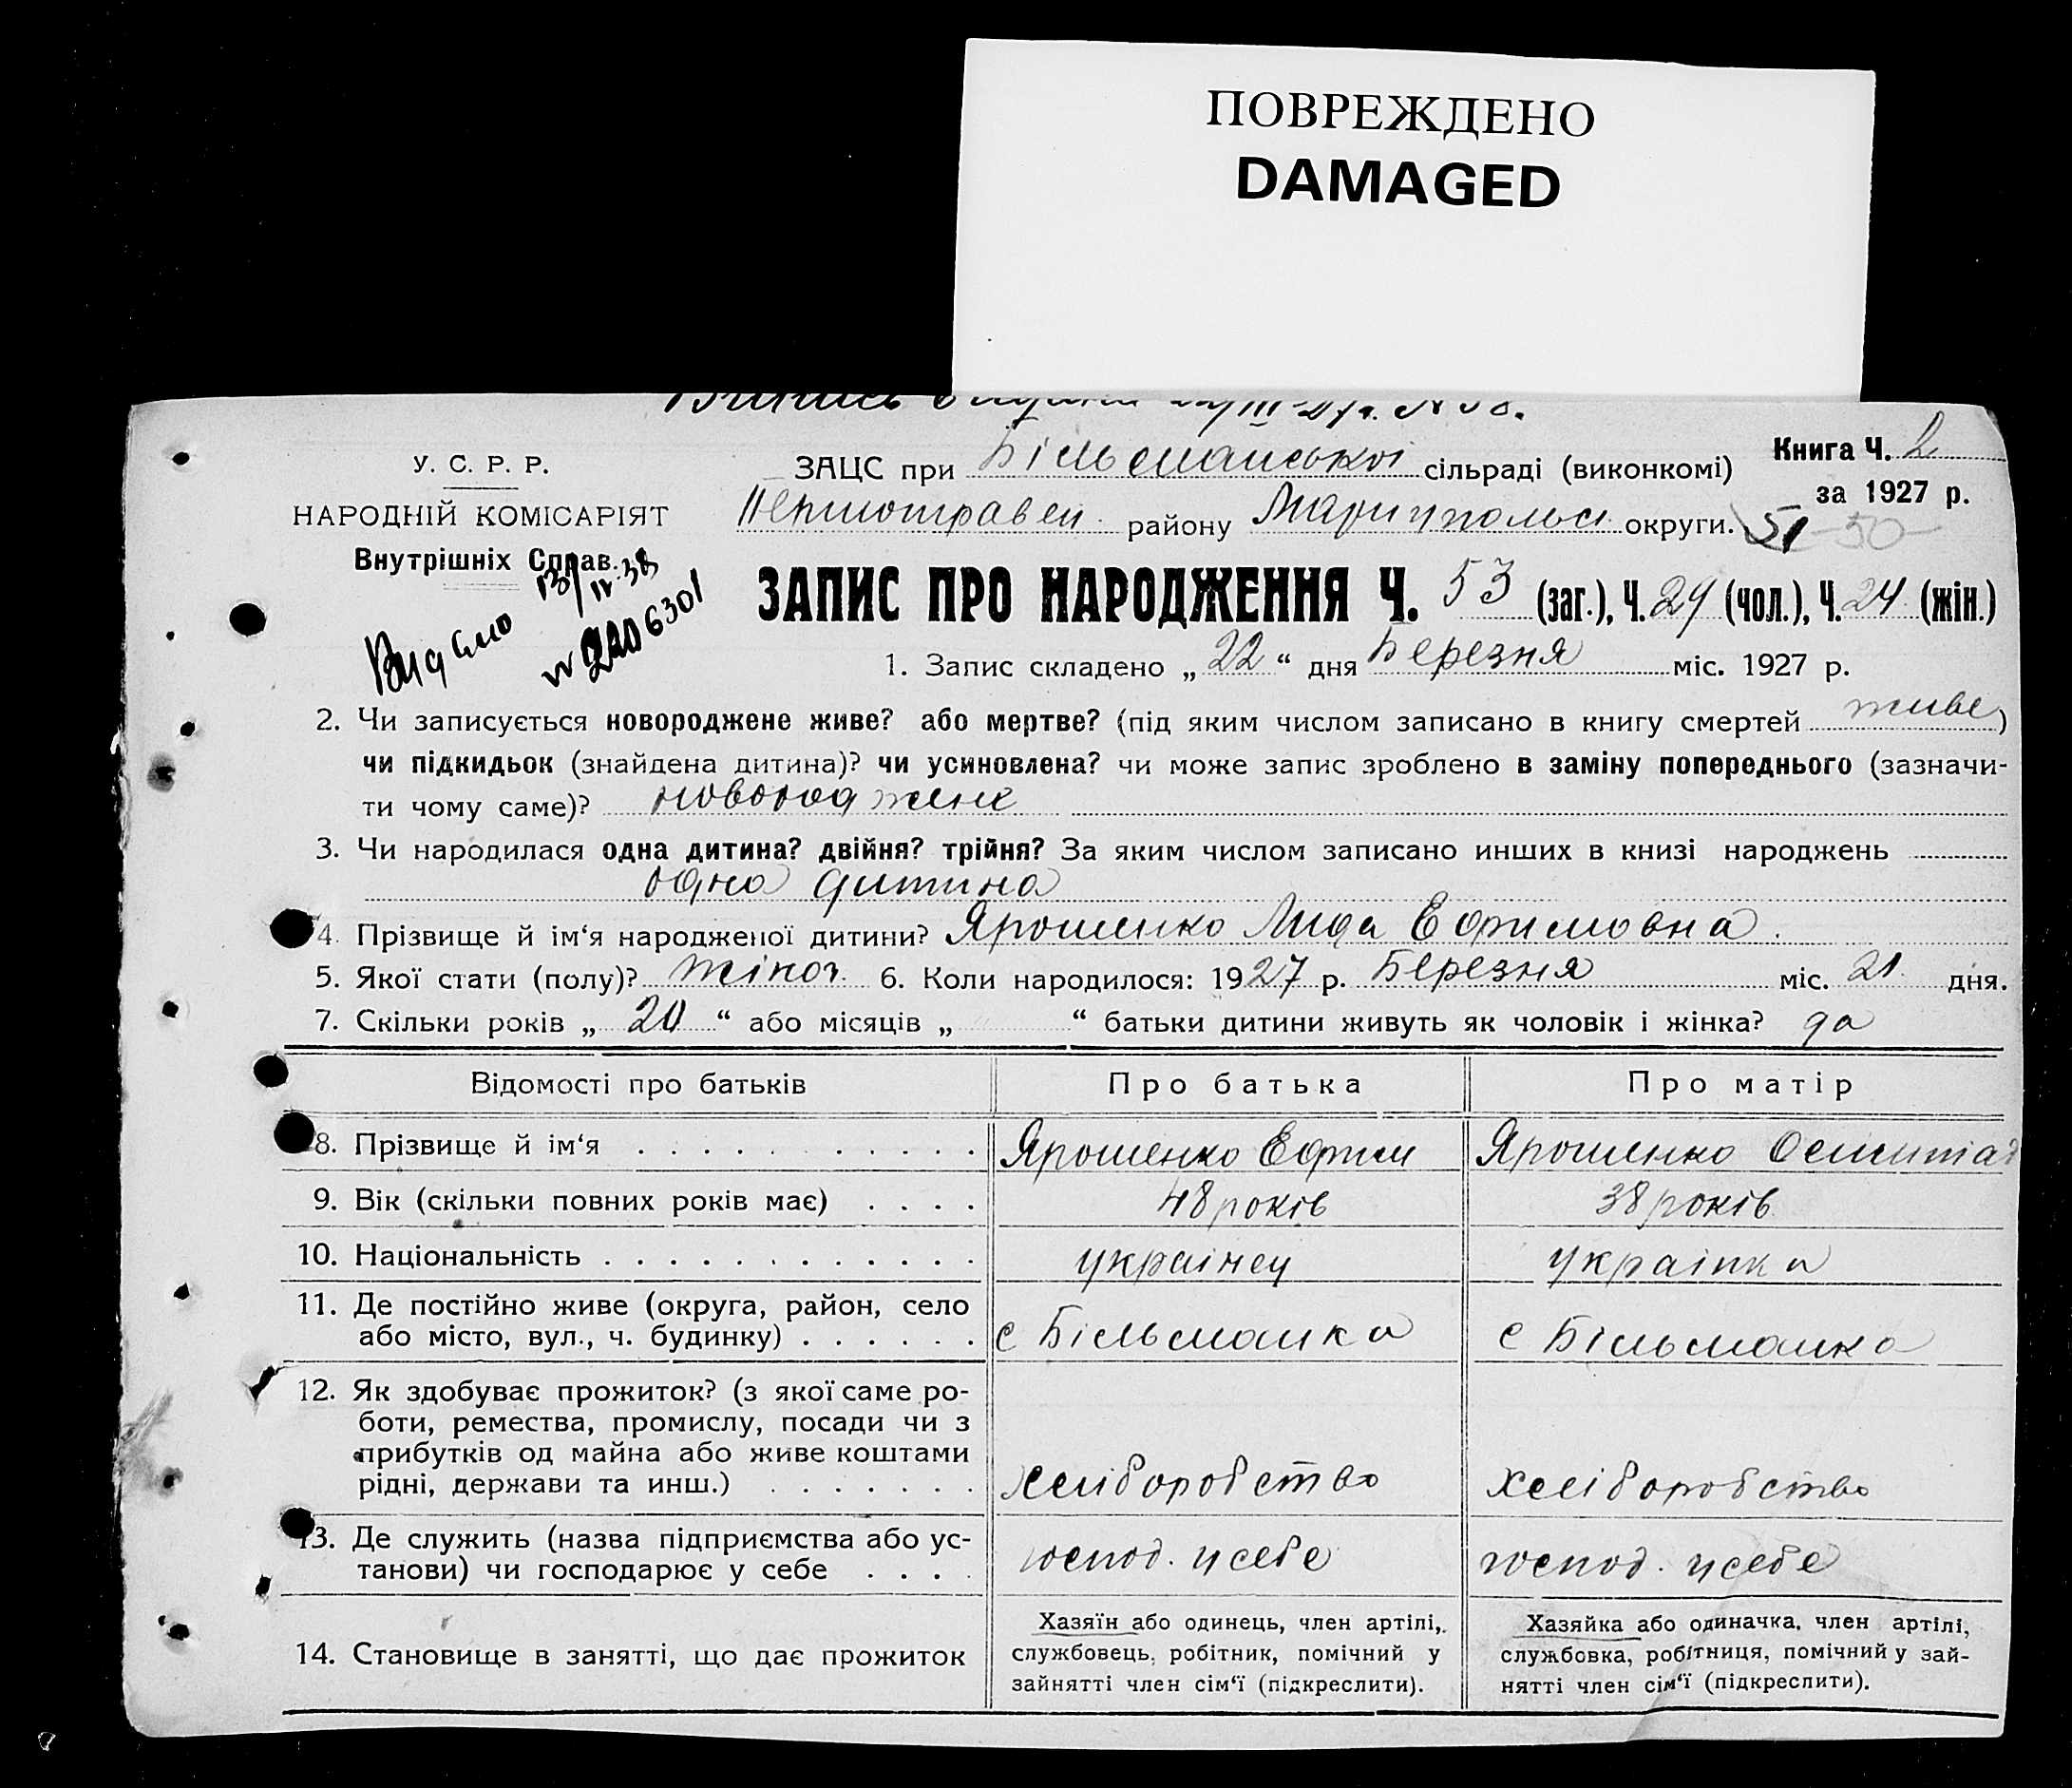 ПОВРЕЖДЕНО
DAMAGED
У. С. Р. Р.
НАРОДНІЙ КОМІСАРІЯТ
Внутрішніх Справ.
Видано 13/IV-38
ЗАЦС при Більманської сільраді (виконкомі)
Першотравен. району Маріупольс. округи.
Книга Ч. 2
за 1927 р.
51 -50-
ЗАПИС ПРО НАРОДЖЕННЯ Ч. 53 (заг.), Ч. 29 (чол.), Ч. 24 (жін.)
1. Запис складено „ 22 “ дня Березня міс. 1927 р.
2. Чи записується новороджене живе? або мертве? (під яким числом записано в книгу смертей живе)
чи підкидьок (знайдена дитина)? чи усиновлена? чи може запис зроблено в заміну попереднього (зазначи-
ти чому саме)? новороджене
3. Чи народилася одна дитина? двійня? трійня? За яким числом записано инших в книзі народжень
одна дитина
4. Прізвище й ім‘я народженої дитини? Ярошенко Лида Ефимовна.
5. Якої стати (полу)? жіноч. 6. Коли народилося: 1927 р. Березня міс. 21 дня.
7. Скільки років „ 20 “ або місяців „ “ батьки дитини живуть як чоловік і жінка? да
Відомості про батьків Про батька Про матір
8. Прізвище й ім‘я Ярошенко Ефим Ярошенко
9. Вік (скільки повних років має) 48 років 38 років
10. Національність українец українка
11. Де постійно живе (округа, район, село
або місто, вул., ч. будинку) с Більманка с Більманка
12. Як здобуває прожиток? (з якої саме ро-
боти, ремества, промислу, посади чи з
прибутків од майна або живе коштами
рідні, держави та инш.) хліборобство хліборобство
13. Де служить (назва підприємства або ус-
танови) чи господарює у себе господ. у себе господ. у себе
14. Становище в занятті, що дає прожиток
Хазяїн або одинець, член артілі,
службовець, робітник, помічний у
зайнятті член сім‘ї (підкреслити).
Хазяйка або одиначка, член артілі,
службовка, робітниця, помічний у зай-
нятті член сім‘ї (підкреслити).